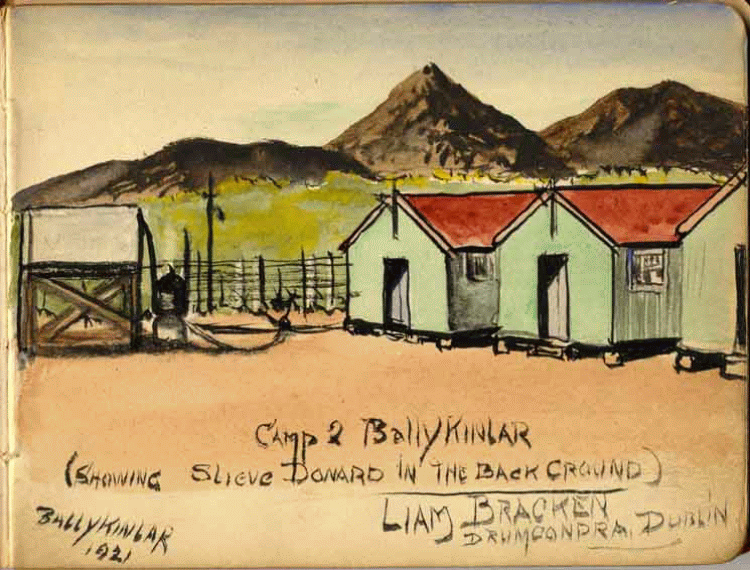 Camp 2 BallyKINLAR
(SHOWING SLIEVE DONARD IN THE BACK GROUND)
LIAM BRACKEN
DRUMCONDRA, DUBLIN
BALLYKINLAR
1921